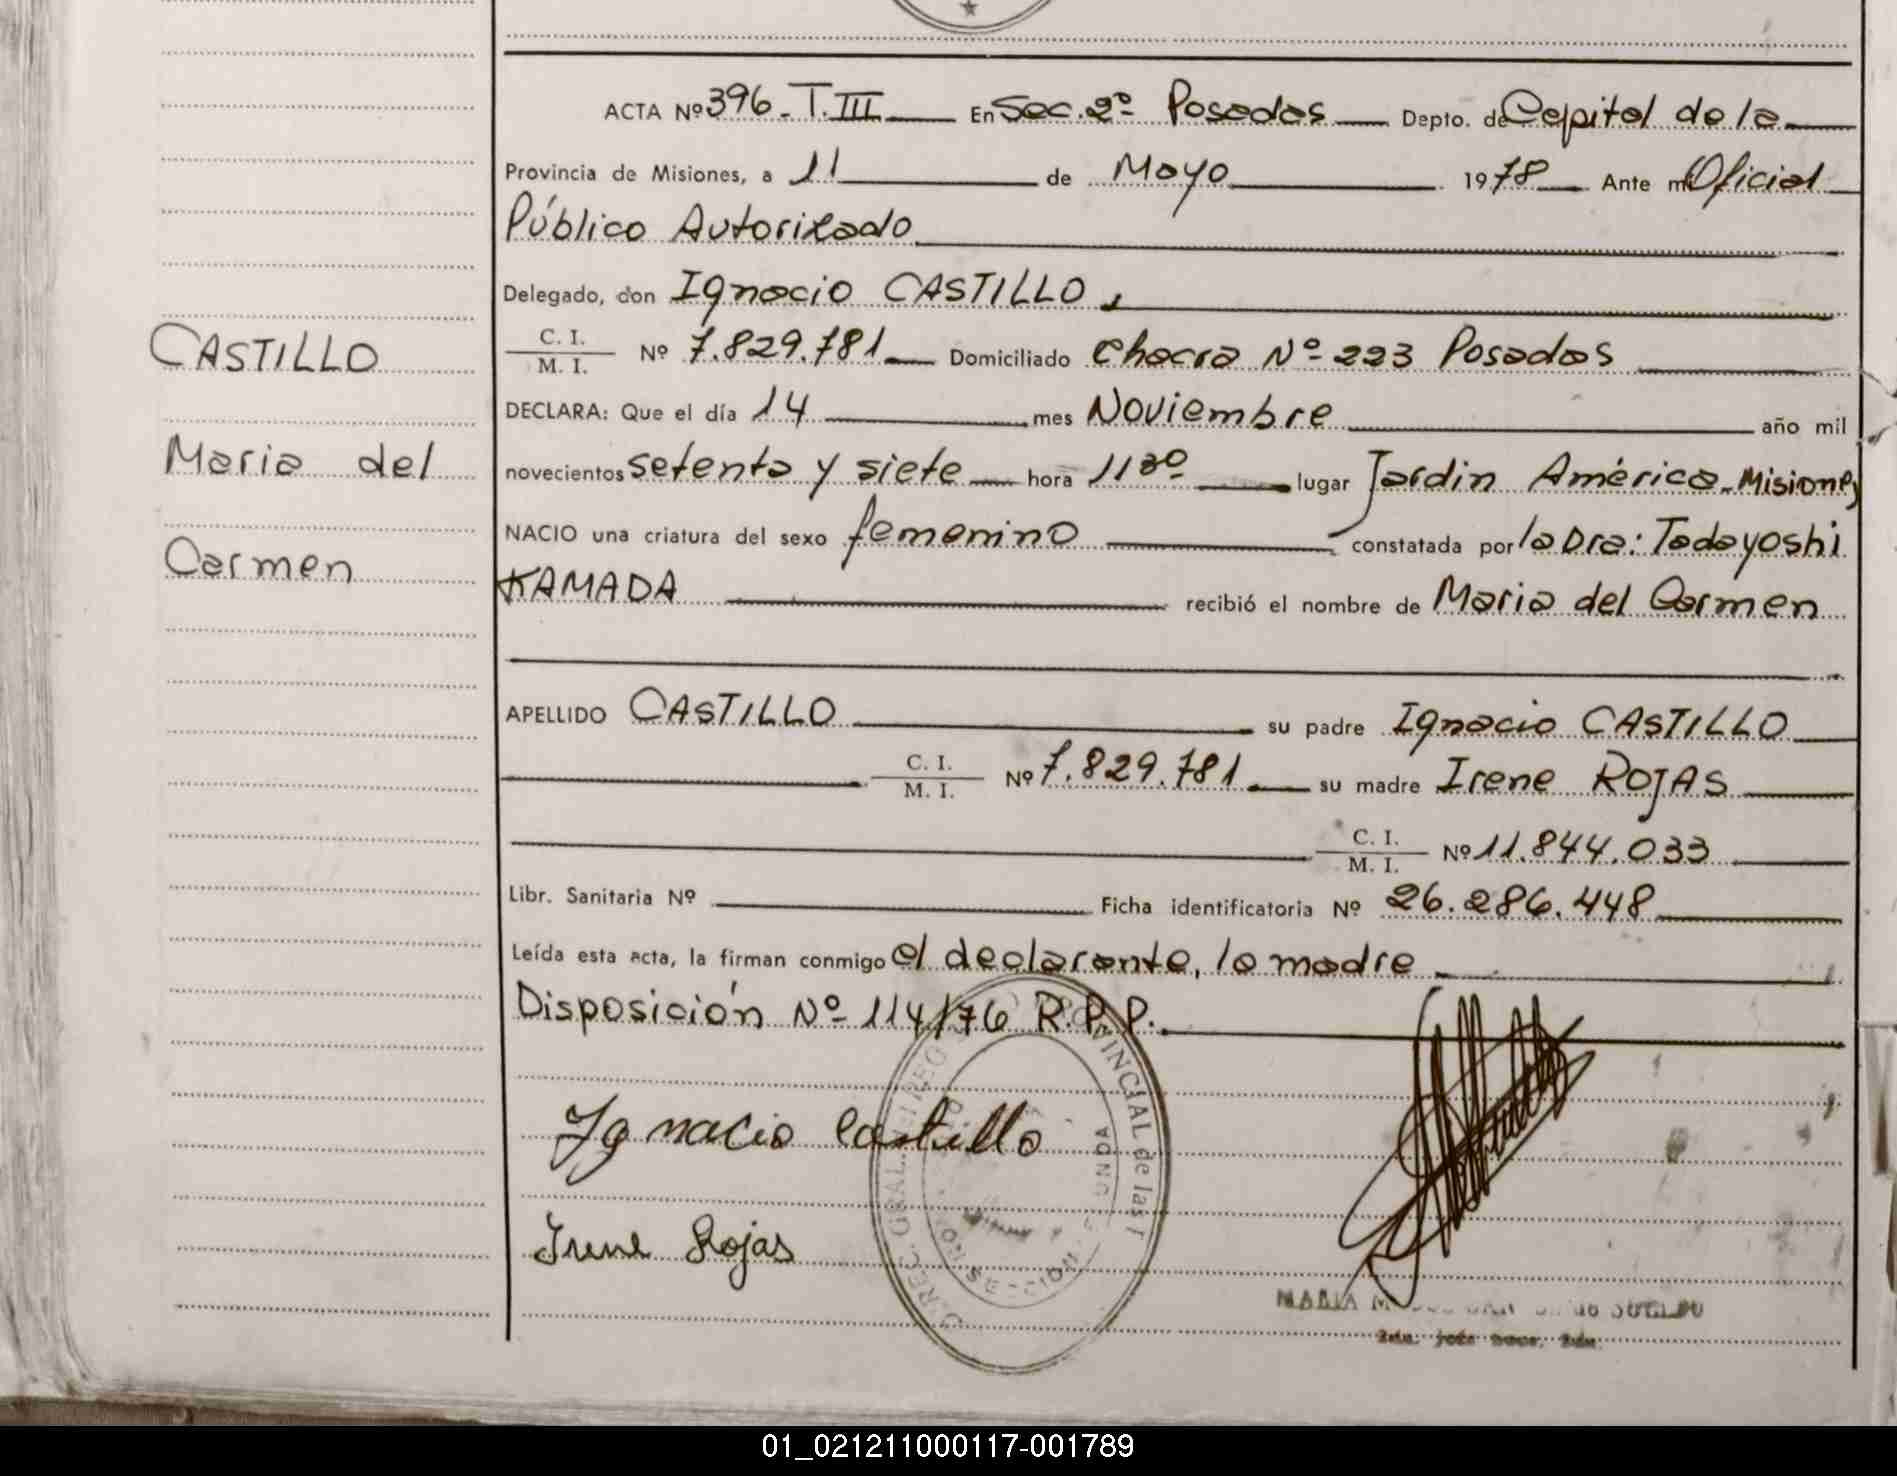 ACTA Nº 396 - T. III En Sec. 2º Posadas Depto. de Capital de la
Provincia de Misiones, a 11 de Mayo 1978 Ante mi Oficial
Público Autorizado
Delegado, don Ignacio CASTILLO,
C. I. / M. I. Nº 7.829.781 Domiciliado Chacra Nº 223 Posadas
CASTILLO
DECLARA: Que el día 14 mes Noviembre año mil
novecientos setenta y siete hora 11 30 lugar Jardin América - Misiones
Maria del
NACIO una criatura del sexo femenino constatada por la Dra: Tadayoshi
Carmen
KAMADA recibió el nombre de Maria del Carmen
APELLIDO CASTILLO su padre Ignacio CASTILLO
C. I. / M. I. Nº 7.829.781 su madre Irene ROJAS
C. I. / M. I. Nº 11.844.033
Libr. Sanitaria Nº Ficha identificatoria Nº 26.286.448
Leída esta acta, la firman conmigo el declarante, la madre
Disposición Nº 114/76 R.P.P.
Ignacio Castillo
Irene Rojas
MARIA
01_021211000117-001789